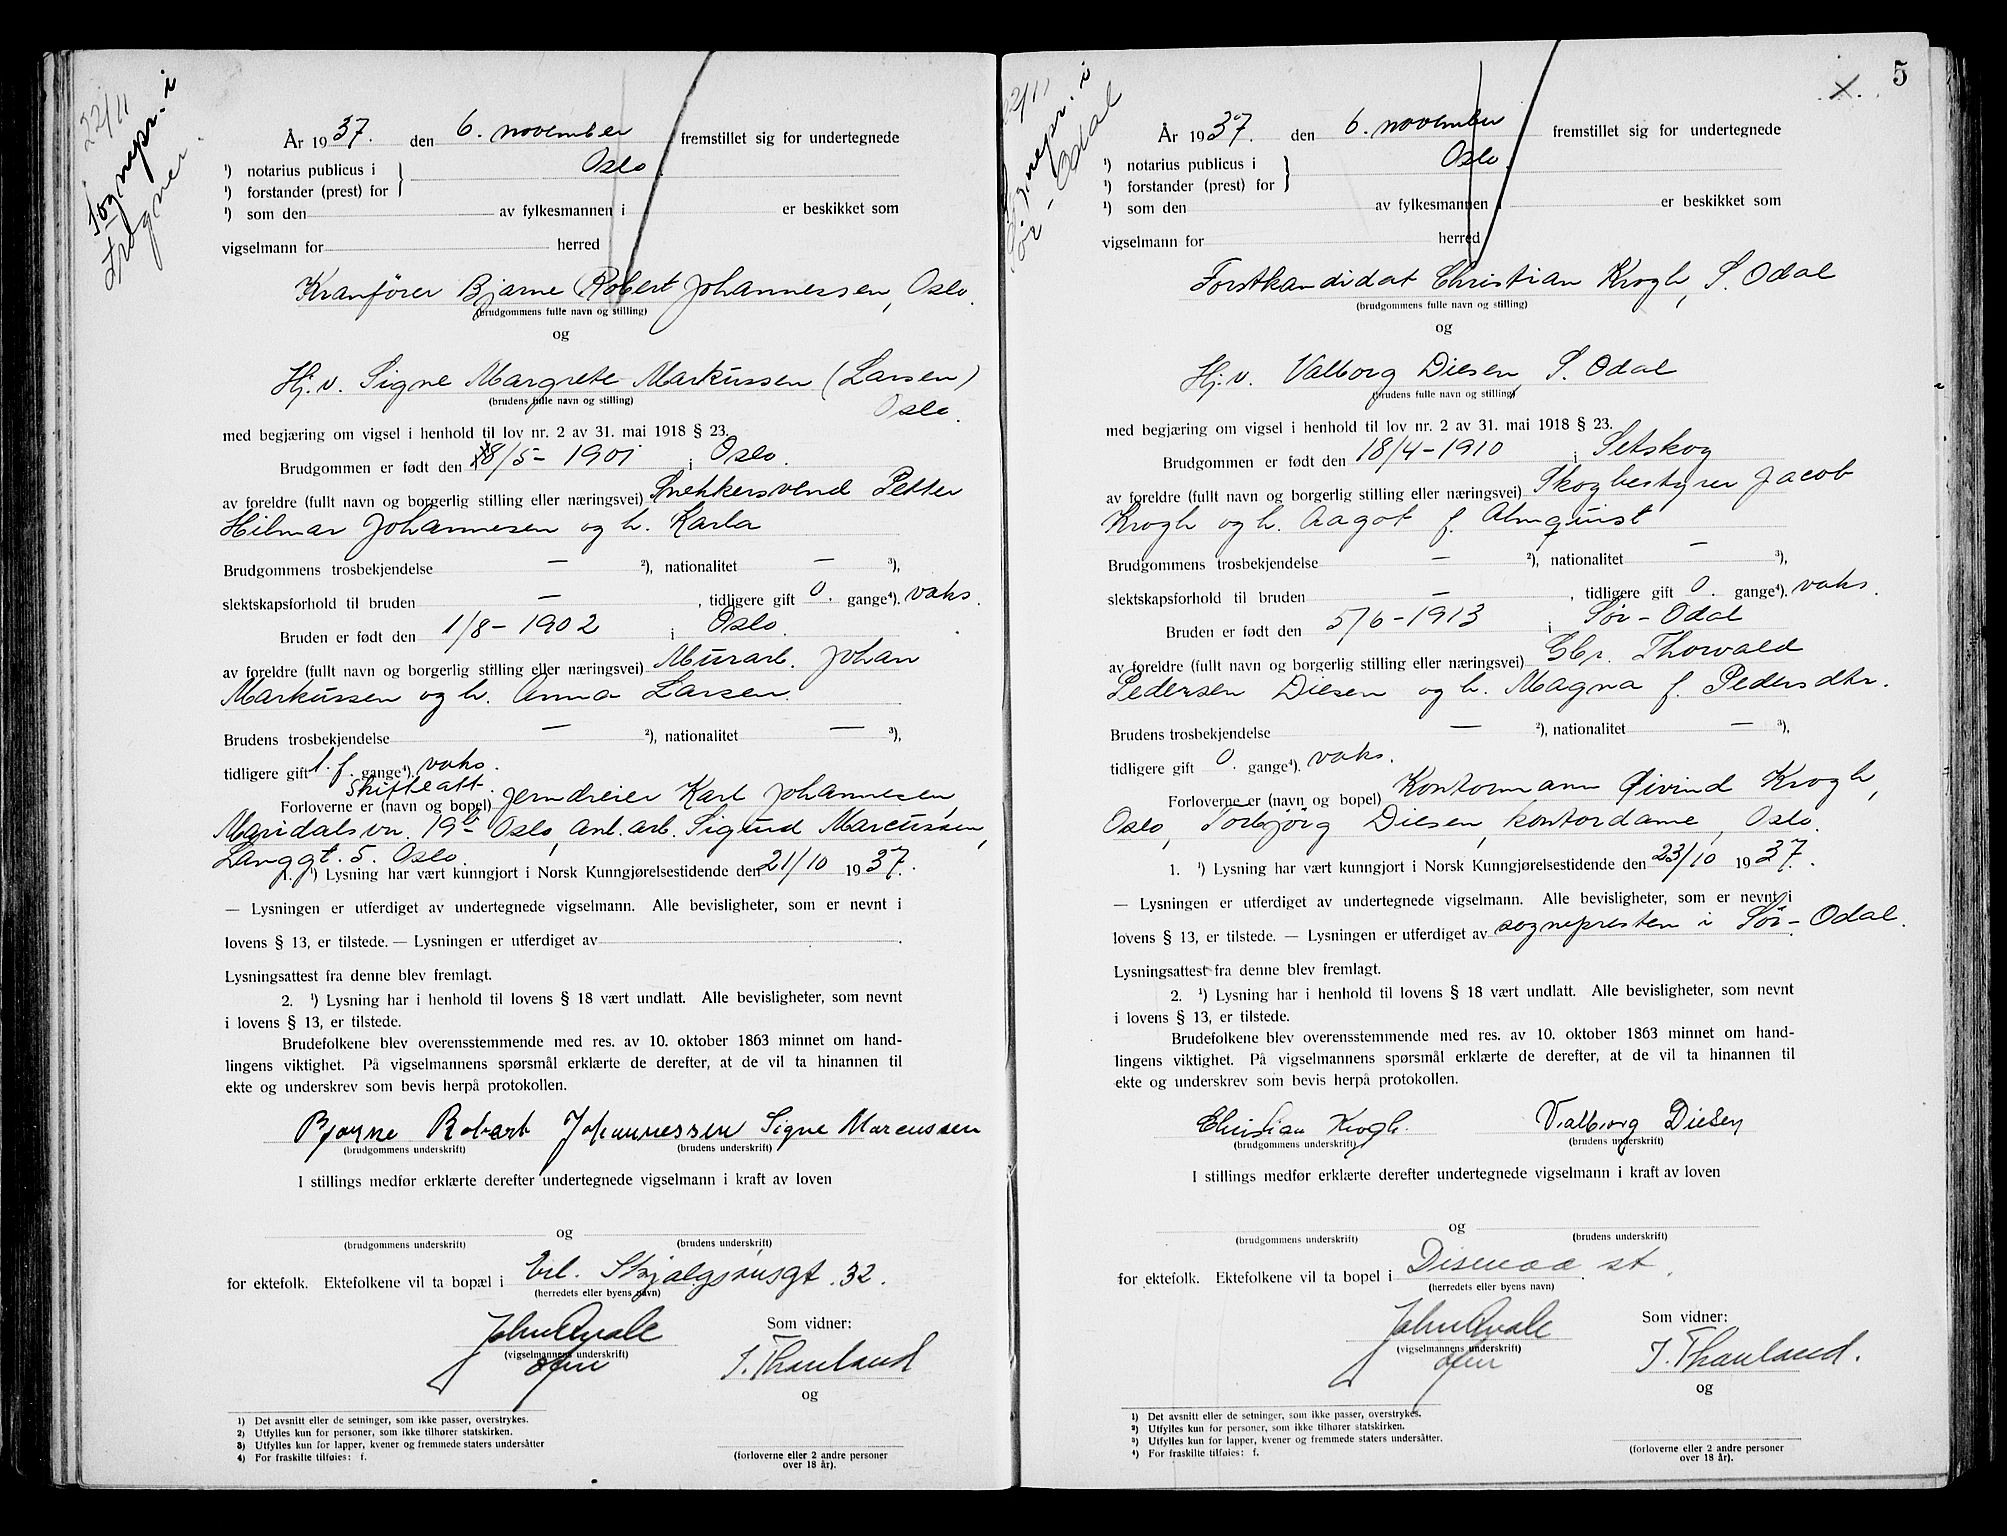 22/11
Sognepr. i
Frogner.
År 1937. den 6. november fremstillet sig for undertegnede
¹) notarius publicus i
Oslo.
¹) forstander (prest) for
¹) som den av fylkesmannen i er beskikket som
vigselmann for herred
Kranfører Bjarne Robert Johannessen, Oslo.
(brudgommens fulle navn og stilling)
og
Hj.v. Signe Margrete Markussen (Larsen)
(brudens fulle navn og stilling)
Oslo.
med begjæring om vigsel i henhold til lov nr. 2 av 31. mai 1918 § 23.
Brudgommen er født den 18/5-1901 i Oslo.
av foreldre (fullt navn og borgerlig stilling eller næringsvei) Snekkersvend Petter
Hilmar Johannesen og h. Karla
Brudgommens trosbekjendelse — ²), nationalitet — ³),
slektskapsforhold til bruden — , tidligere gift 0. gange⁴). vaks.
Bruden er født den 1/8-1902 i Oslo.
av foreldre (fullt navn og borgerlig stilling eller næringsvei) Murarb. Johan
Markussen og h. Anna Larsen.
Brudens trosbekjendelse — ²), nationalitet — ³),
tidligere gift 1. f. gange⁴). vaks.
skifteatt.
Forloverne er (navn og bopel) Jerndreier Karl Johannesen,
Maridalsvn. 19b Oslo, anl.arb. Sigurd Marcussen,
Langgt. 5. Oslo.
1. ¹) Lysning har vært kunngjort i Norsk Kunngjørelsestidende den 21/10 1937.
— Lysningen er utferdiget av undertegnede vigselmann. Alle bevisligheter, som er nevnt i
lovens § 13, er tilstede. — Lysningen er utferdiget av
Lysningsattest fra denne blev fremlagt.
2. ¹) Lysning har i henhold til lovens § 18 vært undlatt. Alle bevisligheter, som nevnt
i lovens § 13, er tilstede.
Brudefolkene blev overensstemmende med res. av 10. oktober 1863 minnet om hand-
lingens viktighet. På vigselmannens spørsmål erklærte de derefter, at de vil ta hinannen til
ekte og underskrev som bevis herpå protokollen.
Bjarne Robert Johannessen Signe Marcussen
(brudgommens underskrift) (brudens underskrift)
I stillings medfør erklærte derefter undertegnede vigselmann i kraft av loven
og
(brudgommens underskrift) (brudens underskrift)
for ektefolk. Ektefolkene vil ta bopæl i Erl. Skjalgsønsgt. 32.
(herredets eller byens navn)
John Qvale
Som vidner:
(vigselmannens underskrift)
J. Thauland
og
1) Det avsnitt eller de setninger, som ikke passer, overstrykes.
2) Utfylles kun for personer, som ikke tilhører statskirken.
3) Utfylles kun for lapper, kvener og fremmede staters undersåtter
4) For fraskilte tilføies: f.
(forloverne eller 2 andre personer
over 18 år).
5
x.
22/11
Sognepr. i
Sør-Odal
År 1937. den 6. november fremstillet sig for undertegnede
¹) notarius publicus i
Oslo.
¹) forstander (prest) for
¹) som den av fylkesmannen i er beskikket som
vigselmann for herred
Forstkandidat Christian Krogh, S. Odal
(brudgommens fulle navn og stilling)
og
Hj.v. Valborg Diesen, S. Odal
(brudens fulle navn og stilling)
med begjæring om vigsel i henhold til lov nr. 2 av 31. mai 1918 § 23.
Brudgommen er født den 18/4-1910 i Setskog
av foreldre (fullt navn og borgerlig stilling eller næringsvei) Skogbestyrer Jacob
Krogh og h. Aagot f. Almquist
Brudgommens trosbekjendelse — ²), nationalitet — ³),
slektskapsforhold til bruden — , tidligere gift 0. gange⁴). vaks.
Bruden er født den 5/6-1913 i Sør-Odal
av foreldre (fullt navn og borgerlig stilling eller næringsvei) Gbr. Thorvald
Pedersen Diesen og h. Magna f. Pedersdtr.
Brudens trosbekjendelse — ²), nationalitet — ³),
tidligere gift 0. gange⁴). vaks.
Forloverne er (navn og bopel) Kontormann Øivind Krogh,
Oslo, Torbjörg Diesen, kontordame, Oslo.
1. ¹) Lysning har vært kunngjort i Norsk Kunngjørelsestidende den 23/10 1937.
— Lysningen er utferdiget av undertegnede vigselmann. Alle bevisligheter, som er nevnt i
lovens § 13, er tilstede. — Lysningen er utferdiget av sognepresten i Sør-Odal.
Lysningsattest fra denne blev fremlagt.
2. ¹) Lysning har i henhold til lovens § 18 vært undlatt. Alle bevisligheter, som nevnt
i lovens § 13, er tilstede.
Brudefolkene blev overensstemmende med res. av 10. oktober 1863 minnet om hand-
lingens viktighet. På vigselmannens spørsmål erklærte de derefter, at de vil ta hinannen til
ekte og underskrev som bevis herpå protokollen.
Christian Krogh. Valborg Diesen
(brudgommens underskrift) (brudens underskrift)
I stillings medfør erklærte derefter undertegnede vigselmann i kraft av loven
og
(brudgommens underskrift) (brudens underskrift)
for ektefolk. Ektefolkene vil ta bopel i Disenaa st.
(herredets eller byens navn)
John Qvale
Som vidner:
(vigselmannens underskrift)
J. Thauland.
og
1) Det avsnitt eller de setninger, som ikke passer, overstrykes.
2) Utfylles kun for personer, som ikke tilhører statskirken.
3) Utfylles kun for lapper, kvener og fremmede staters undersåtter.
4) For fraskilte tilføies: f.
(forloverne eller 2 andre personer
over 18 år).